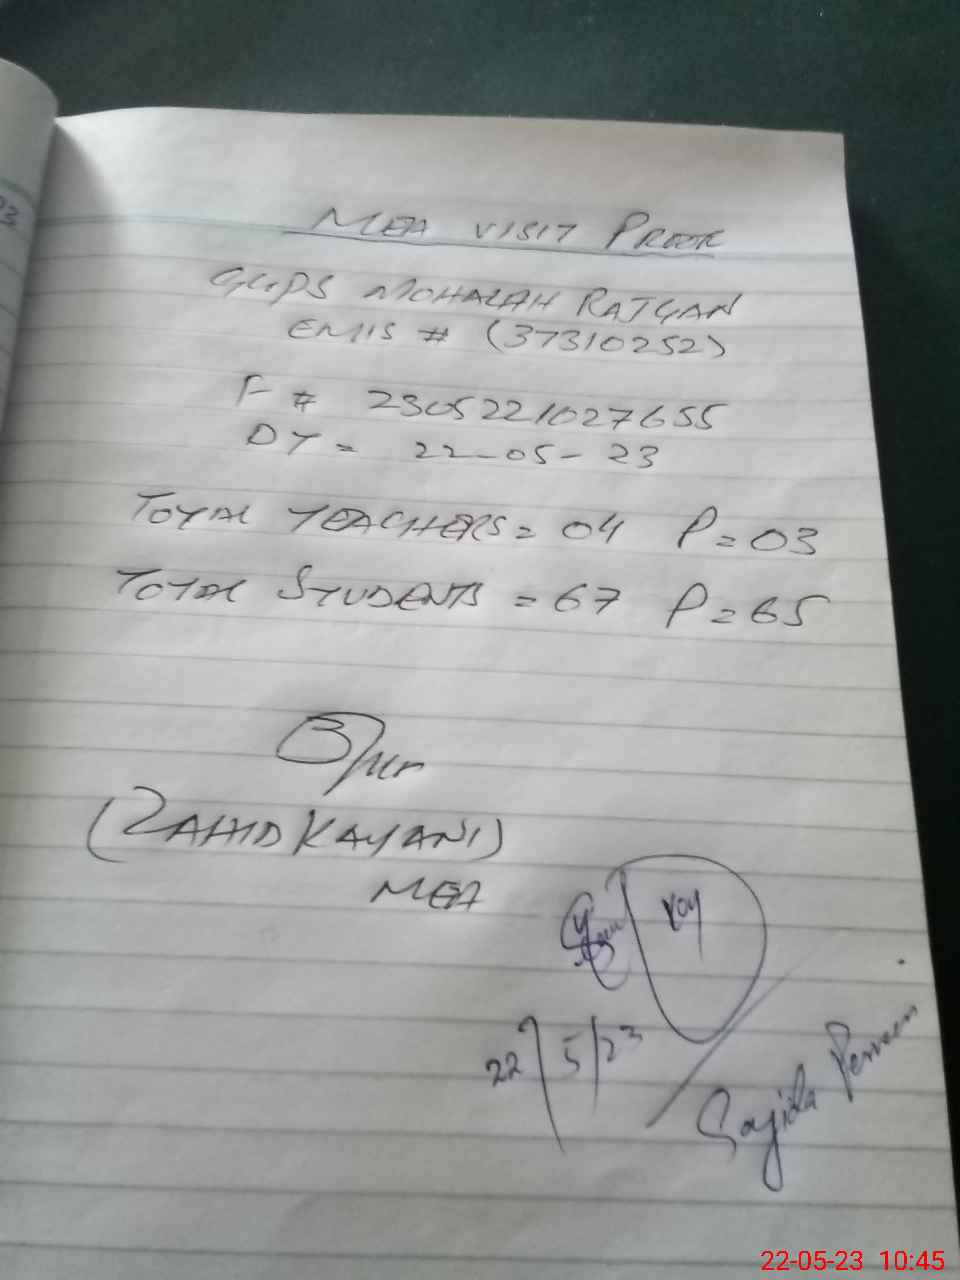 03
MEA VISIT PROOF
GGPS MOHALAH RAJGAN
EMIS # (37310252)
F # 2305221027655
DT = 22-05-23
TOTAL TEACHERS = 04 P = 03
TOTAL STUDENTS = 67 P = 65
(ZAHID KAYANI)
MEA
22/5/23
Sajida Perveen
22-05-23 10:45